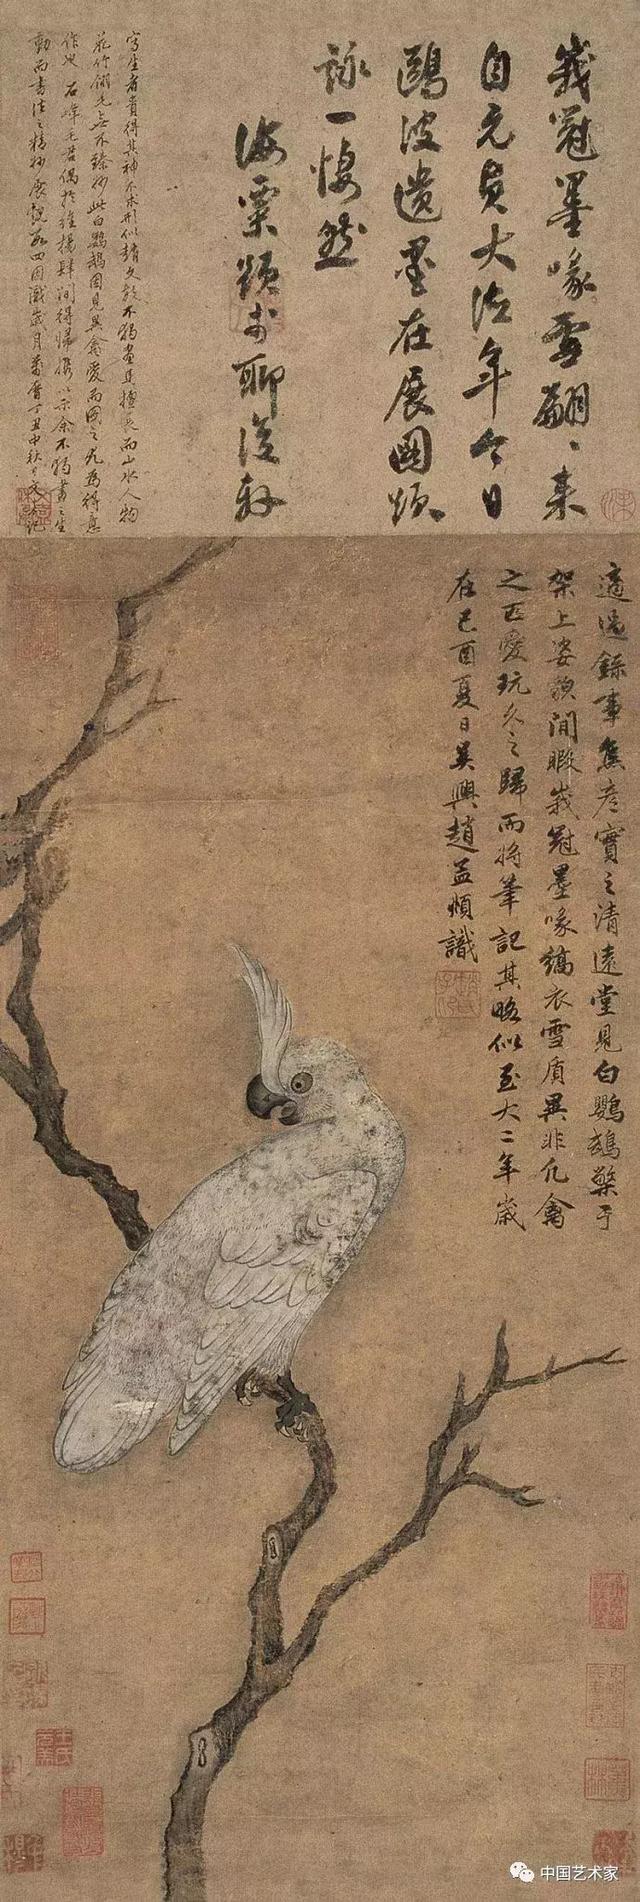 峩冠墨喙雪翩翩来
自元貞大德年今日
鷗波遺墨在展圖煩
詠一悽然
海粟題於聊復軒
寫生者貴得其神不求形似趙文敏不獨畫馬擅長而山水人物
花竹翎毛無不臻妙此白鸚鵡圖見異禽愛而圖之尤為得意
作也石峰王君偶於維揚肆間得歸攜以示余不獨畫之生
動而書法之精妙展観
適過錄事焦彦實之清遠堂見白鸚鵡檠于
架上姿貌閒暇峩冠墨喙縞衣雪質異非凡禽
之匹愛玩久之歸而将筆記其略似至大二年歲
在己酉夏日吳興趙孟頫識
趙氏子昂
中国艺术家